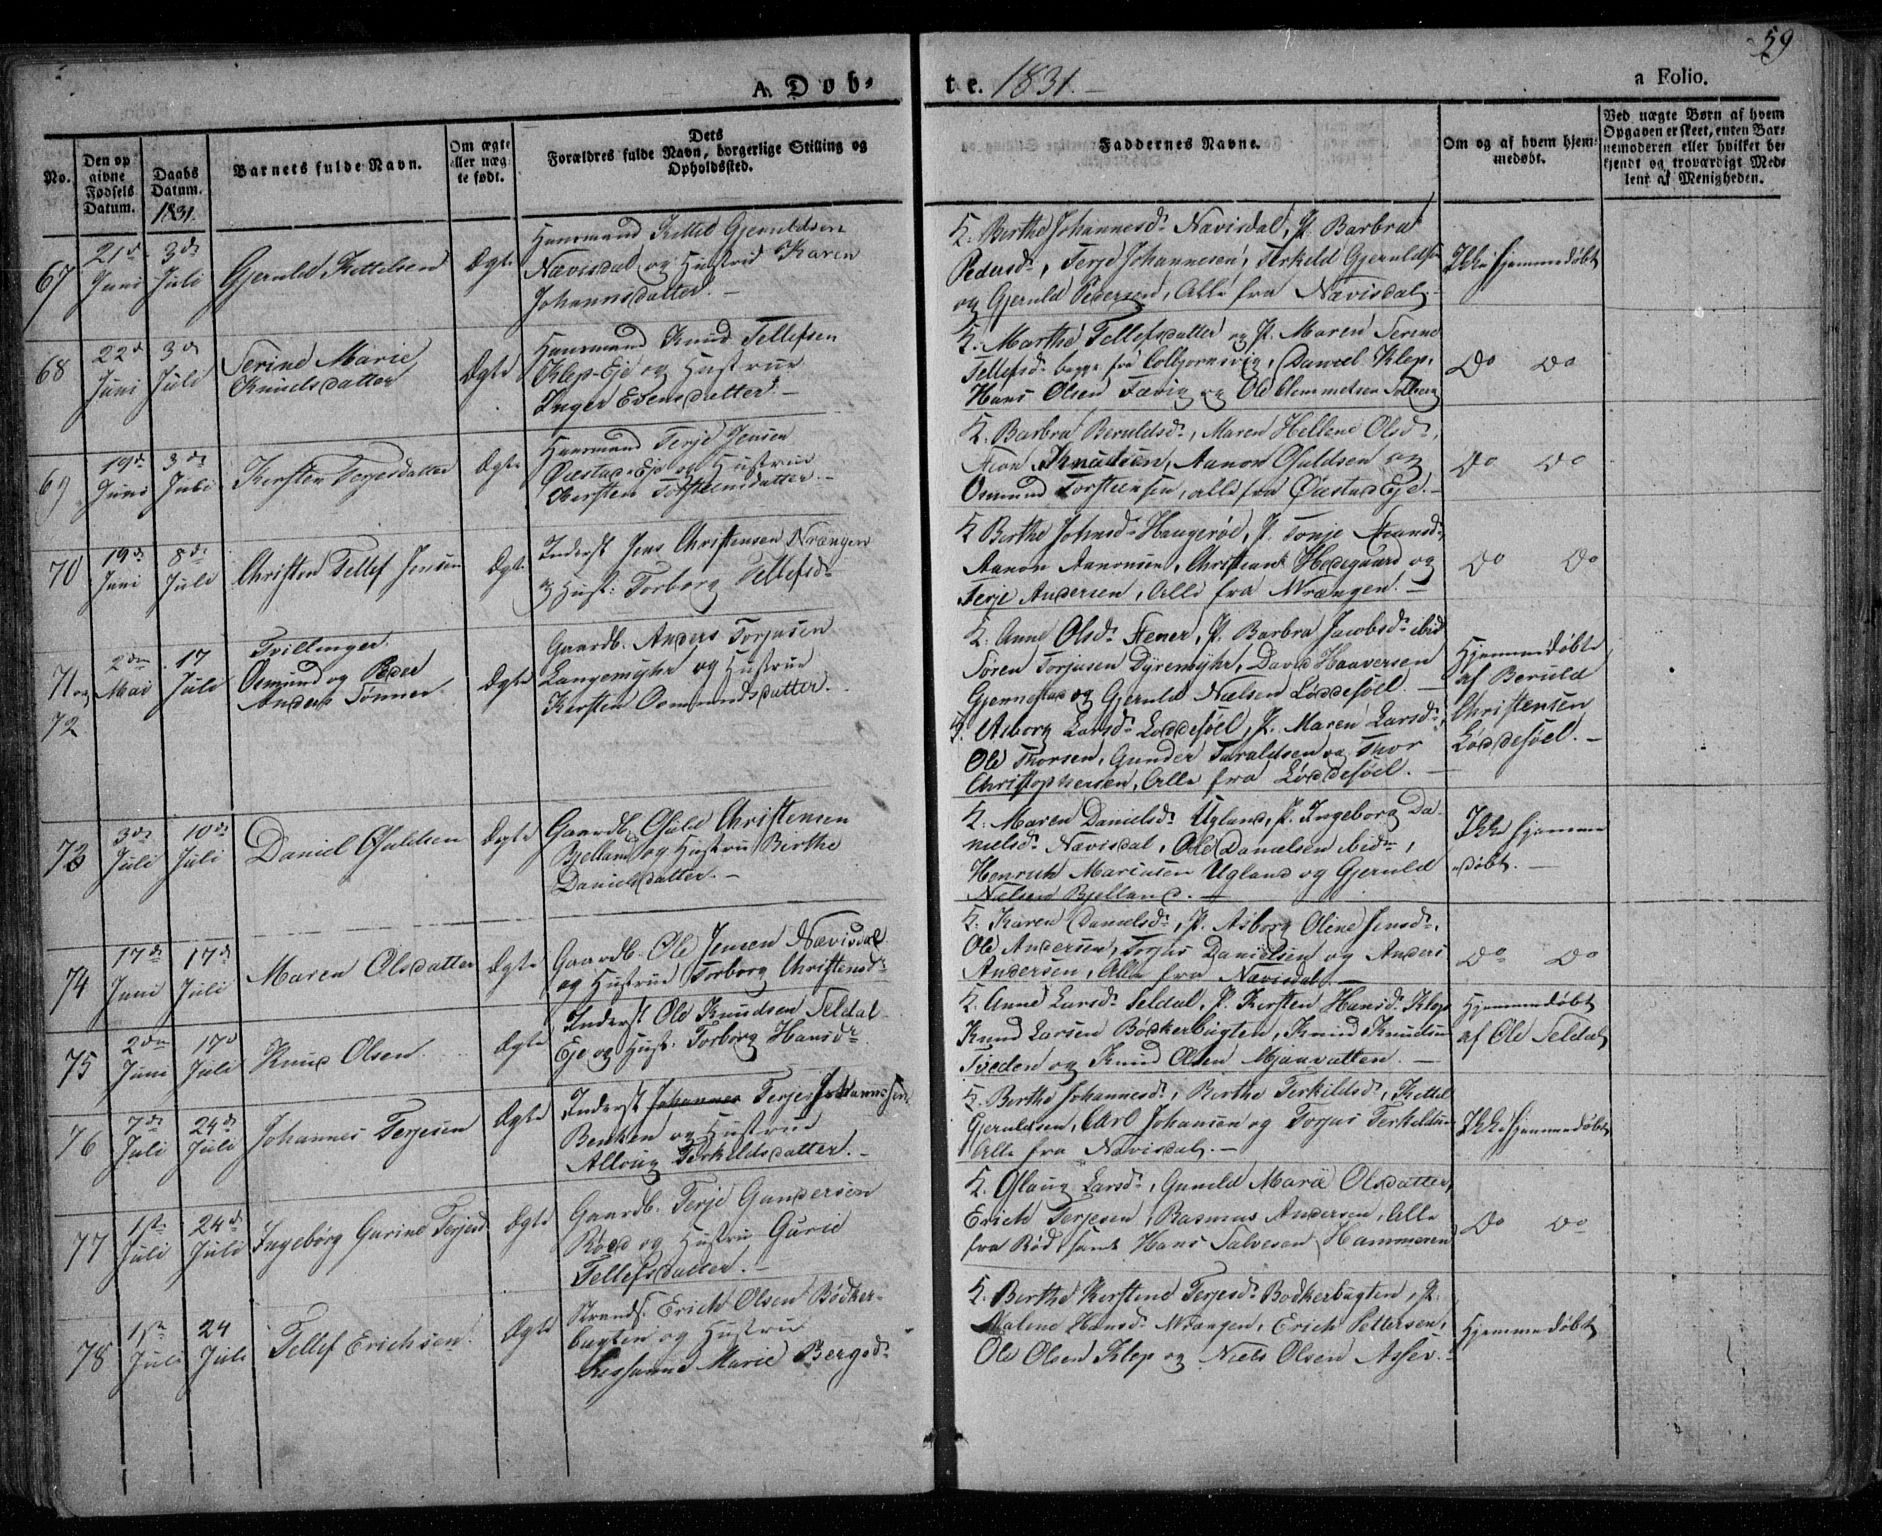 59
A. Døb-
te. 1831.
a Folio.
No.
Den op
givne
Fødsels
Datum.
Daabs
Datum.
1831.
Barnets fulde Navn.
Om ægte
eller uæg
te født.
Dets
Forældres fulde Navn, borgerlige Stilling og
Opholdssted.
Faddernes Navne.
Om og af hvem hjem-
medøbt.
Ved uægte Børn af hvem
Opgaven er skeet, enten Bar-
nemoderen eller hvilket be-
kjendt og troværdigt Med-
lem af Menigheden.
67
21de
Juni
3de
Juli
Gjeruld Kittelsen
Ægte
Huusmand Kittel Gjeruldsen
Nævisdal og Hustrue Karen
Johannsdatter. -
K. Berthe Johannesdr Nævisdal, P. Barbra
Pedersdr, Terje Johannesen, Terkeld Gjeruldsn
og Gjeruld Pedersen, Alle fra Nævisdal.
Ikke hjemmedøbt
68
22de
Juni
3de
Juli
Serine Marie
Knudsdatter
Ægte
Huusmand Knud Tellefsen
Klep-Eje og Hustrue
Inger Evensdatter. -
K. Marthe Tellefsdatter og P. Maren Serine
Tellefsdr begge fra Colbjørnsvig, Daniel Klep,
Hans Olsen Fævig og Ole Clemmetsen
Do Do
69
19de
Juni
3de
Juli
Kirsten Terjesdatter
Ægte
Huusmand Terje Jensen
Øiestad-Eje og Hustrue
Kirsten Torsteensdatter. -
K. Barbra Beruldsdr, Maren Hellene Olsdr,
Knudsen, Aanon Ofuldsen og
Osmund Torsteensen, alle fra Øiestad Eje. -
Do Do
70
19de
Juni
8de
Juli
Christen Tellef Jensen
Ægte
Inderst Jens Christensen Vrængen
og Hust: Torborg Tellefsdr
K Berthe Johnsdr Haugerød, P. Tonje
Aanon Aanonsen, Christian Hedegaard og
Terje Andersen, Alle fra Vrængen. -
Do Do
71 og
72
2den
Mai
17
Juli
Tvillinger
Osmund og Peder
Anders Sønner
Ægte
Gaardb. Anders Torjusen
Langemyhr og Hustrue
Kirsten Osmundsdatter.
K. Anne Olsdr Stener, P. Barbra Jacobsdr ibid
Søren Torjusen Dyremyhr, David Haaversen
Gjennestad og Gjeruld Nielsen Løddesøel. -
K. Asborg Larsdr Løddesøel, P. Maren Larsdr,
Ole Thorsen, Gunder Taraldsen og Thor
Christophersen, Alle fra Løddesøel. -
Hjemmedøbte
af Beruld
Christensen
Løddesøel. -
73
3de
Juli
10de
Juli
Daniel Ofuldsen
Ægte
Gaardb. Ofuld Christensen
Bjelland og Hustrue Birthe
Danielsdatter. -
K. Maren Danielsdr Ugland, P. Ingeborg Da-
nielsdr Nævisdal, Ole Danielsen ibidm,
Henrich Mariusen Ugland og Gjeruld
Nielsen Bjelland. -
Ikke hjemme
døbt. -
74
17de
Juni
17de
Juli
Maren Olsdatter
Ægte
Gaardb. Ole Jensen Nævisdal
og Hustrue Torborg Christensdr
K. Karen Danielsdr, P. Asborg Oline Jensdr,
Ole Andersen, Torjus Danielsen og Anders
Andersen, Alle fra Nævisdal. -
Do Do
75
2den
Juni
17de
Juli
Knud Olsen
Ægte
Inderst Ole Knudsen Seldal
Eje og Hust: Torborg Hansdr
K. Anne Larsdr Seldal, P. Kirsten Hansdr Klep
Knud Larsen Bødkerbugten, Knud Knudsen
Sveden og Knud Olsen Mjaavatten. -
Hjemmedøbt
af Ole Seldal
76
7de
Juli
24de
Juli
Johannes Terjesen
Ægte
Inderst Johannes Terje Johannssen
Benken og Hustrue
Alloug Terkildsdatter. -
K. Berthe Johannesdr, Berthe Terkildsdr, Kittel
Gjeruldsen, Carl Johansen og Torjus Terkildsn
Alle fra Nævisdal. -
Ikke hjemmedøbt
77
1ste
Juli
24de
Juli
Ingebørg Gurine Terjesd
Ægte
Gaardb. Terje Gundersen
Rød og Hustrue Gurie
Tellefsdatter. -
K. Oslaug Larsdr, Gunild Maria Olsdatter,
Erich Terjesen, Rasmus Andersen, Alle
fra Rød, samt Hans Salvesen Hammeren
Do Do
78
1ste
Juli
24
Juli
Tellef Erichsen
Ægte
Strands. Erich Olsen Bødker-
bugten og Hustrue
Marie Bergsdr
K. Berthe Kirstene Terjesdr Bødkerbugten, P.
Malene Hansdr Vrangen, Erich Pettersen,
Ole Olsen Klep og Niels Olsen Assev. -
Hjemmedøbt